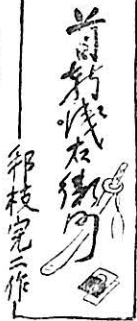 首斬浅右衛門
邦枝完二作